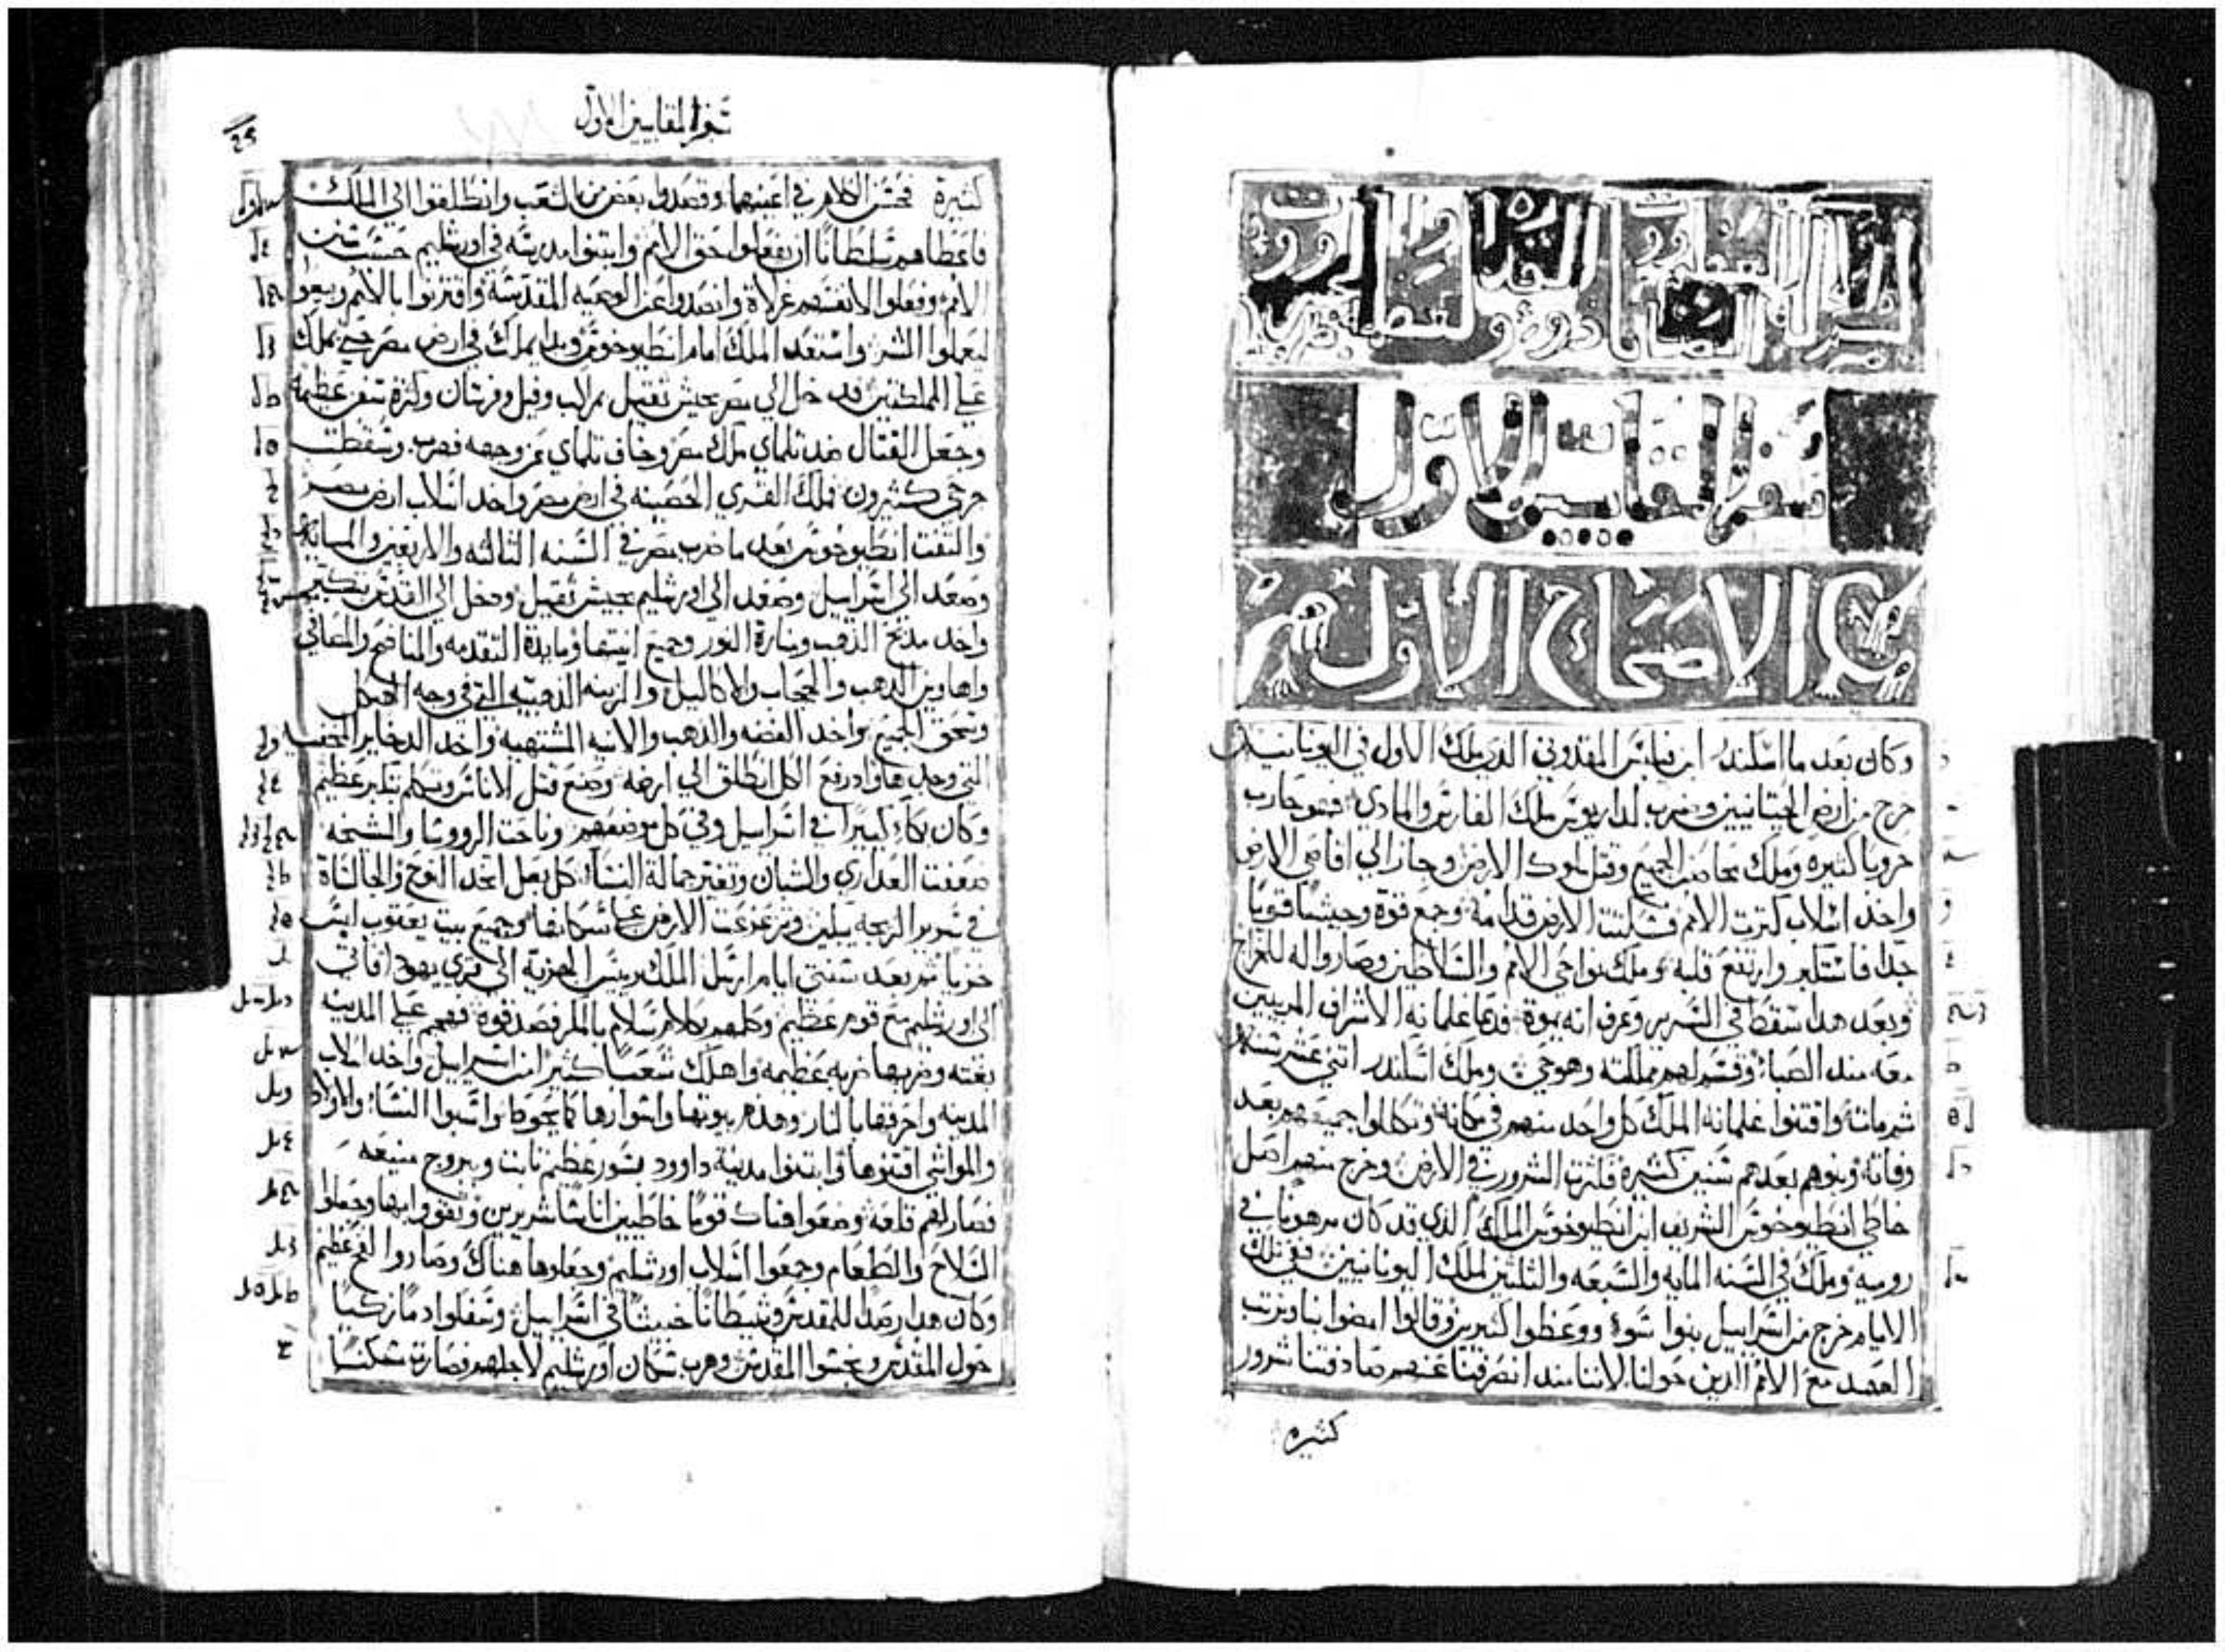 سفر المقابيين الاول
الاصحاح الاول
وكان بعد ما اسكندر ابن فيلبس المقدوني الدي ملك الاول في اليونانيين
خرج من ارض الحيتانيين وضرب لداريوس ملك الفارس والمادي فهو حارب
حروبا كثيره وملك محاصن الجميع وقتل ملوك الارض وجاز الي اقاصي الارض
واخد اسلاب كترت الامم فسكتت الارض قدامه وجمع قوة وجيشا قويا
جدا فاستكبر وارتفع قلبه وملك نواحي الامم والسلاطين وصاروا له للخراج
وبعد هدا سقط في السرير وعرف انه يموت فدعا غلمانه الاشراف المربيين
معه مند الصباء وقسم لهم مملكته وهو حي وملك اسكندر اتني عشر سنه
ثم مات واقتنوا غلمانه الملك كل واحد منهم في مكانه وتكللوا جميعهم بعد
وفاته وبنوهم بعدهم سنين كثيره فكثرت الشرور في الارض وخرج منهم اصل
خاطي انطيوخوس الشريف ابن انطيوخوس الملك الذي قد كان مرهونا في
روميه وملك في السنه المايه والسبعه والثلثين لملك اليونانيين في تلك
الايام خرج من اسراييل بنوا سوء ووعظوا كثيرين وقالوا امضوا بنا ونرتب
العهد مع الامم الدين حولنا لاننا مند انصرفنا عنهم صادفتنا شرور
كثيره
سفر المقابيين الاول
كثيرة فحسن الكلام في اعينهما وقصدوا بعض من الشعب وانطلقوا الي الملك
فاعطاهم سلطانا ان يفعلوا حق الامم وابتنوا مدرسة في اورشليم حسب سنن
الامم وفعلوا لانفسهم غرلاة وانصدوا عن الوصيه المقدسة واقترنوا بالامم وبيعوا
ليعملوا الشر واستعد الملك امام انطيوخوس وبدا يملك في ارض مصر حتي يملك
علي المملكتين فدخل الي مصر بجيش تقيل بمراكب وفيل وفرسان وكترة سفن عظيمة
وجعل القتال ضد تلماي ملك مصر وخاف تلماي من وجهه فهرب وسقطت
جرحي كثيرون فملك القري الحصينه في ارض مصر واخد اسلاب ارض مصر
والتفت انطيوخوس بعد ما ضرب مصر في السنه التالته والاربعين والمايه
وصعد الي اسراييل وصعد الي اورشليم بجيش تقيل ودخل الي القدس بتكبر
واخد مدبح الدهب ومنارة النور وجميع انيتها ومايدة التقدمه والمناضح والمصافي
واهاوين الدهب والحجاب والاكاليل والزينه الدهبيه التي في وجه الهيكل
وسحق الجميع واخد الفضه والدهب والانيه المشتهيه واخد الدخاير المخفيه
التي وجدها واد رفع الكل انطلق الي ارضه وصنع قتل الاناس وتكلم بتكبر عظيم
وكان بكاء كبيرا في اسراييل وفي كل موضعهم وناحت الرووسا والشيخه
ضعفت العداري والشبان وتغير جمالة النساء كل بعل اتخد النوح والجالساة
في سرير الزيجه يبكين وتزعزعت الارض علي سكانها وجميع بيت يعقوب لبس
خزيا تم بعد سنتي ايام ارسل الملك رييس الجزية الي قري يهودا فاتي
الي اورشليم مع قوم عظيم وكلمهم بكلام سلام بالمكر فصدقوه فهجم علي المدينه
بغته وضربها ضربه عظيمه واهلك شعبا كثيرا من اسراييل واخد اسلاب
المدينه واحرقها بالنار وهدم بيوتها واسوارها كما يحوطها واسبوا النساء والاولاد
والمواشي اقتنوها وابتنوا مدينة داوود بسور عظيم تابت وبروج منيعه
فصار لهم قلعه وضعوا هناك قوما خاطيين اناسا شريرين وتقووا بها وجعلوا
السلاح والطعام وجمعوا اسلاب اورشليم وجعلوها هناك وصاروا لفخ عظيم
وكان هدا رصدا للمقدس وشيطانا خبيثا في اسراييل وسفكوا دما زكيا
حول المقدس ونجسوا المقدس وهرب سكان اورشليم لاجلهم فصارت مسكنا